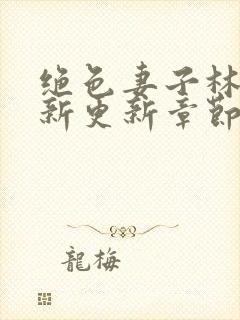 绝色妻子林
新更新章節
龍梅